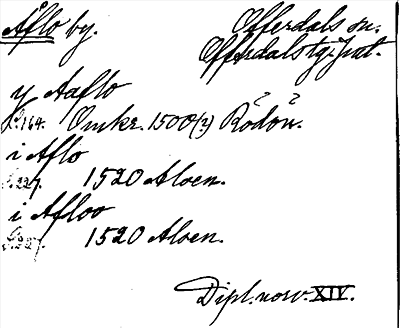 Åflo by. Offerdals sn.
Offerdals tg. Jmt.
y Aaflo
s. 164. Omkr. 1500(?) Rödön.
i Aflo
s. 227. 1520 Aloen.
i Afloo
1520 Aloen.
Dipl. norv. XIV.